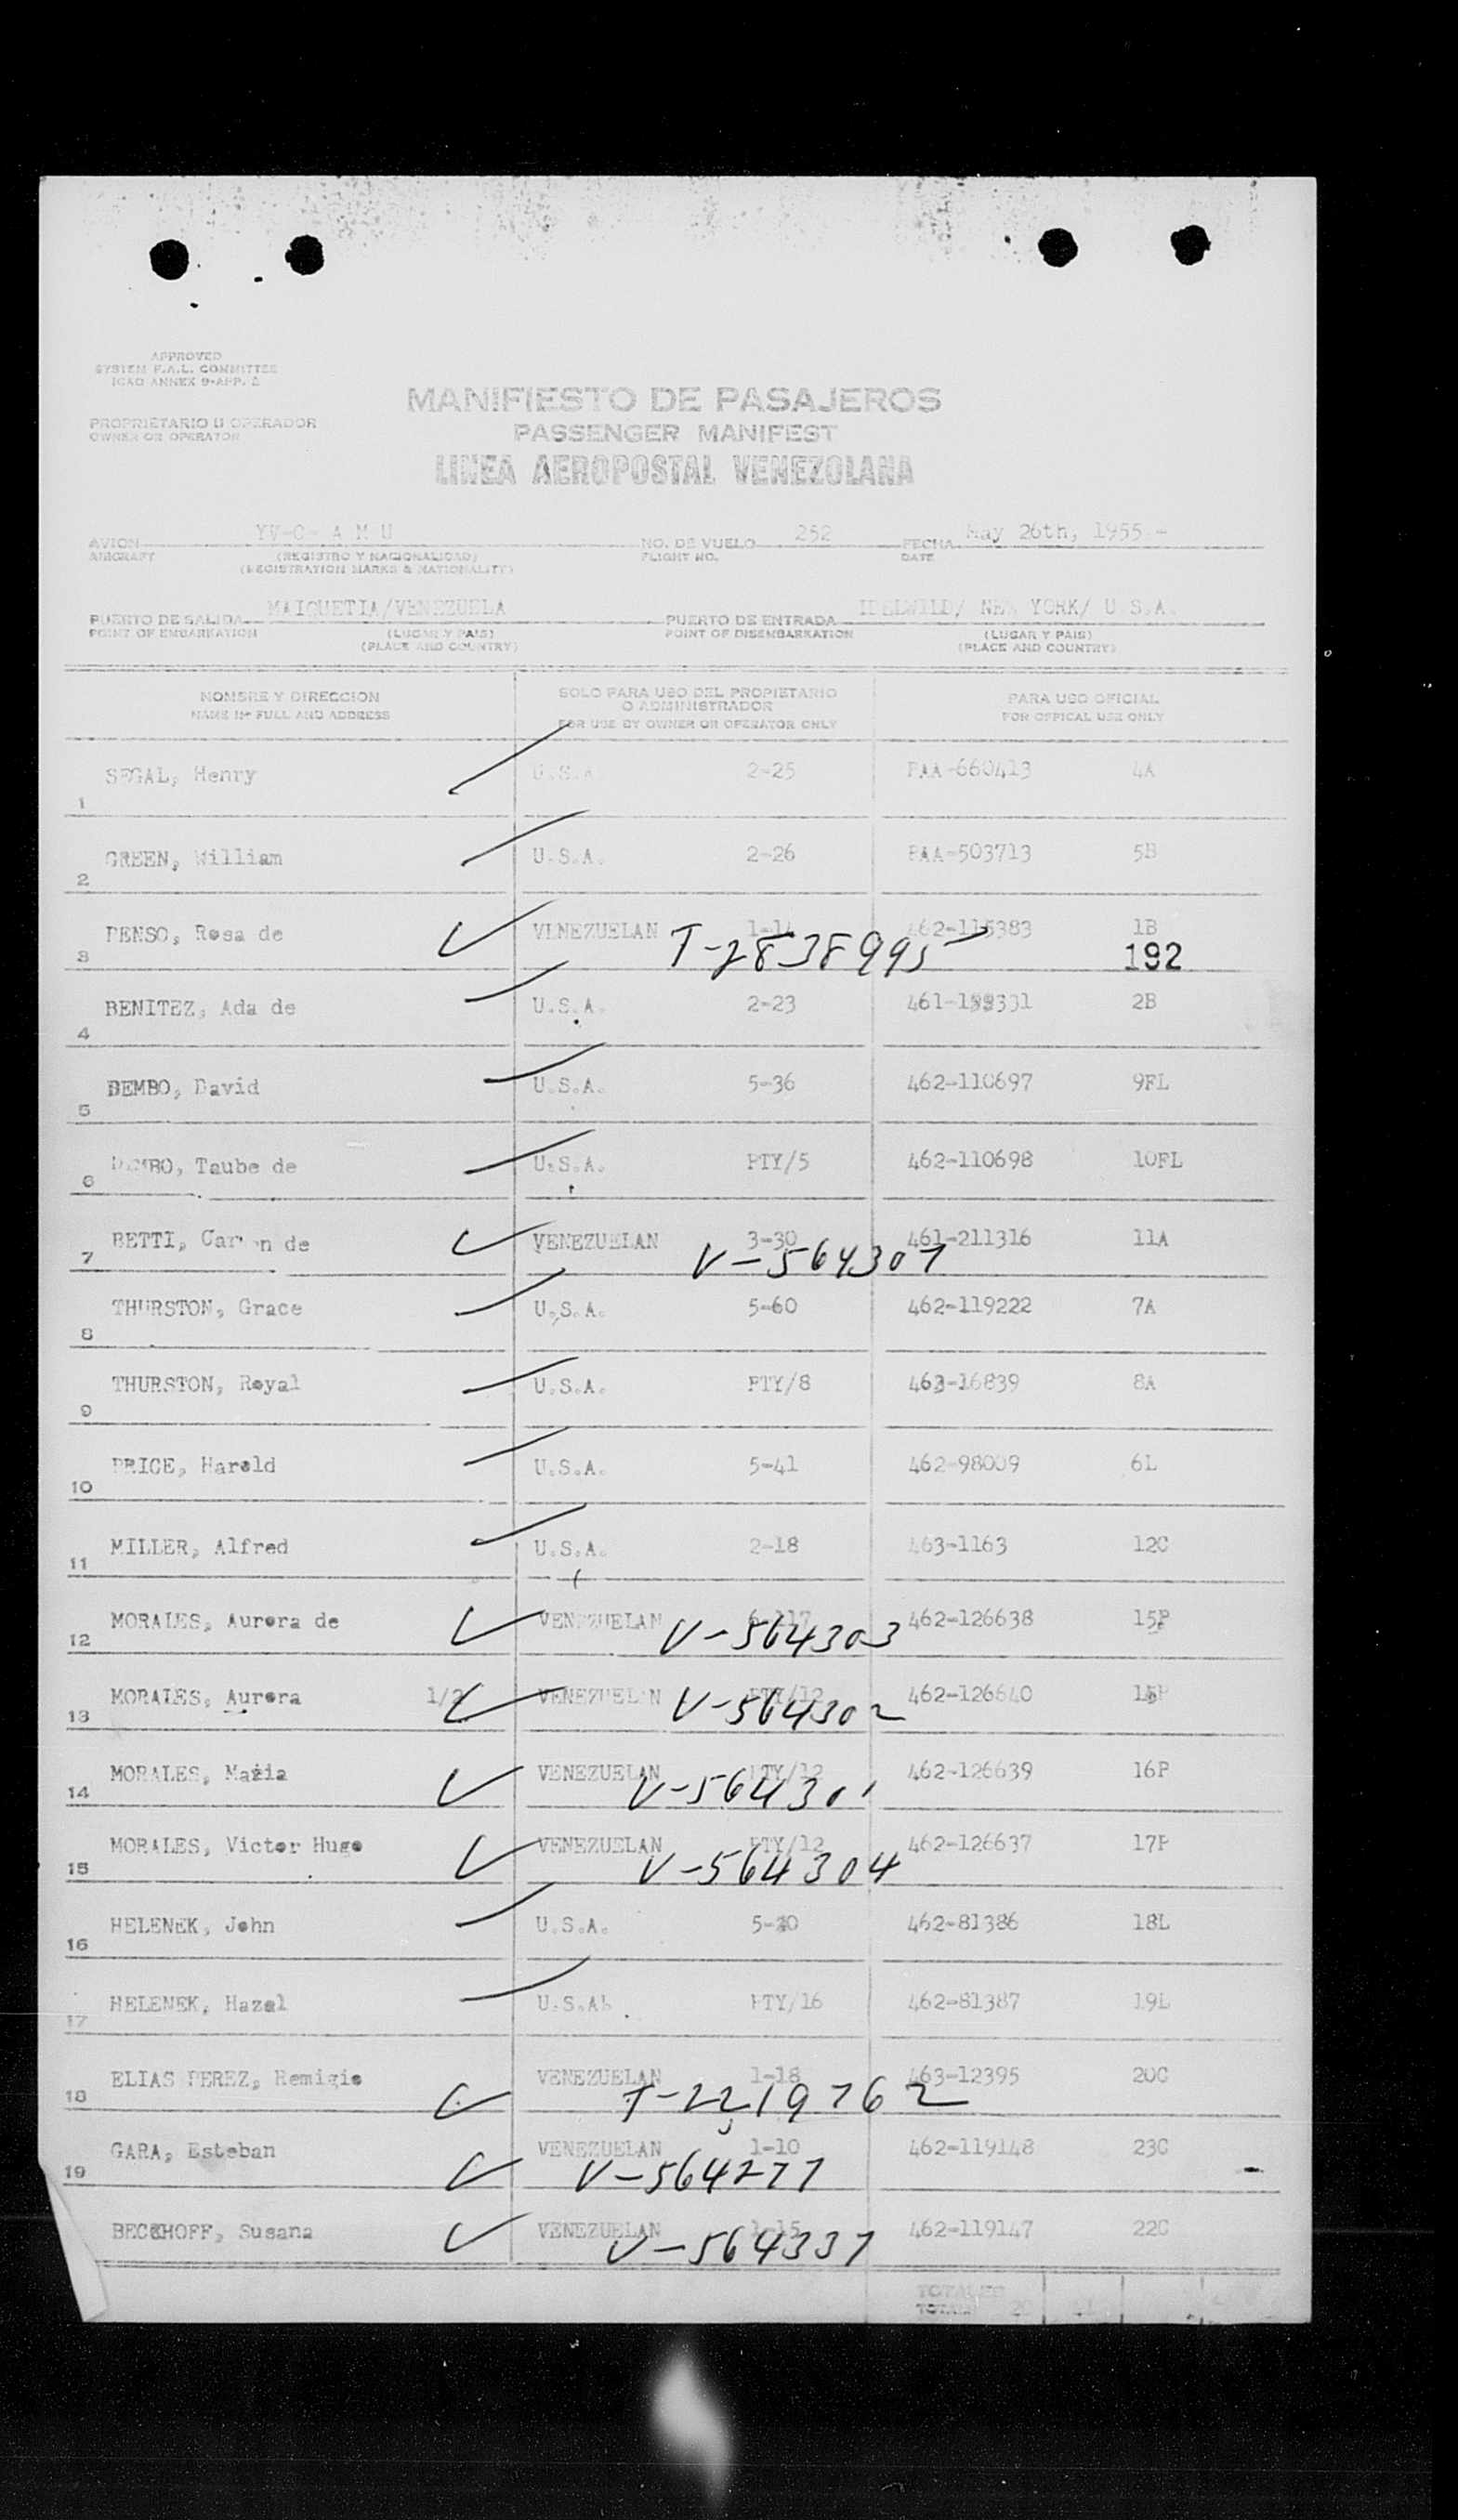 APPROVED
SYSTEM F.A.L. COMMITTEE
ICAO ANNEX 9-APP. 2
PROPRIETARIO U OPERADOR
OWNER OR OPERATOR
MANIFIESTO DE PASAJEROS
PASSENGER MANIFEST
LINEA AEROPOSTAL VENEZOLANA
AVION YV-C- A M U NO. DE VUELO 252 FECHA May 26th, 1955.-
AIRCRAFT (REGISTRO Y NACIONALIDAD) FLIGHT NO. DATE
(REGISTRATION MARKS & NATIONALITY)
PUERTO DE SALIDA MAIQUETIA/VENEZUELA PUERTO DE ENTRADA IDELWILD/ NEW YORK/ U.S.A.
POINT OF EMBARKATION (LUGAR Y PAIS) POINT OF DISEMBARKATION (LUGAR Y PAIS)
(PLACE AND COUNTRY) (PLACE AND COUNTRY)
NOMBRE Y DIRECCION SOLO PARA USO DEL PROPIETARIO PARA USO OFICIAL
O ADMINISTRADOR
NAME IN FULL AND ADDRESS FOR USE BY OWNER OR OPERATOR ONLY FOR OFFICAL USE ONLY
1 SEGAL, Henry U.S.A 2-25 PAA-660413 4A
2 GREEN, William U.S.A. 2-26 PAA-503713 5B
3 PENSO, Rosa de VENEZUELAN 1-14 462-115383 1B
T-2838995 192
4 BENITEZ, Ada de U.S.A. 2-23 2B
5 BEMBO, David U.S.A. 5-36 462-110697 9FL
6 Taube de U.S.A. PTY/5 462-110698 10FL
7 BETTI, de VENEZUELAN 3-30 461-211316 11A
V-564307
8 THURSTON, Grace U.S.A. 5-60 462-119222 7A
9 THURSTON, Royal U.S.A. PTY/8 463-16839 8A
10 PRICE, Harold U.S.A. 5-41 462-98009 6L
11 MILLER, Alfred U.S.A. 2-18 463-1163 12C
12 MORALES, Aurora de VENEZUELAN 6-117 462-126638 15P
V-564303
13 MORALES, Aurora 1/2 VENEZUELAN PTY/12 462-126640 15P
V-564302
14 MORALES, Maria VENEZUELAN PTY/12 462-126639 16P
V-564301
15 MORALES, Victor Hugo VENEZUELAN PTY/12 462-126637 17P
V-564304
16 HELENEK, John U.S.A. 462-81386 18L
17 HELENEK, Hazel U.S.A. PTY/16 462-81387 19L
18 ELIAS PEREZ, Remigio VENEZUELAN 1-18 463-12395 20C
T-2219762
19 GARA, Esteban VENEZUELAN 1-10 462-119148 23C
V-564277
BECKHOFF, Susana VENEZUELAN 1-15 462-119147 22C
V-564337
TOTALES
TOTALS 20